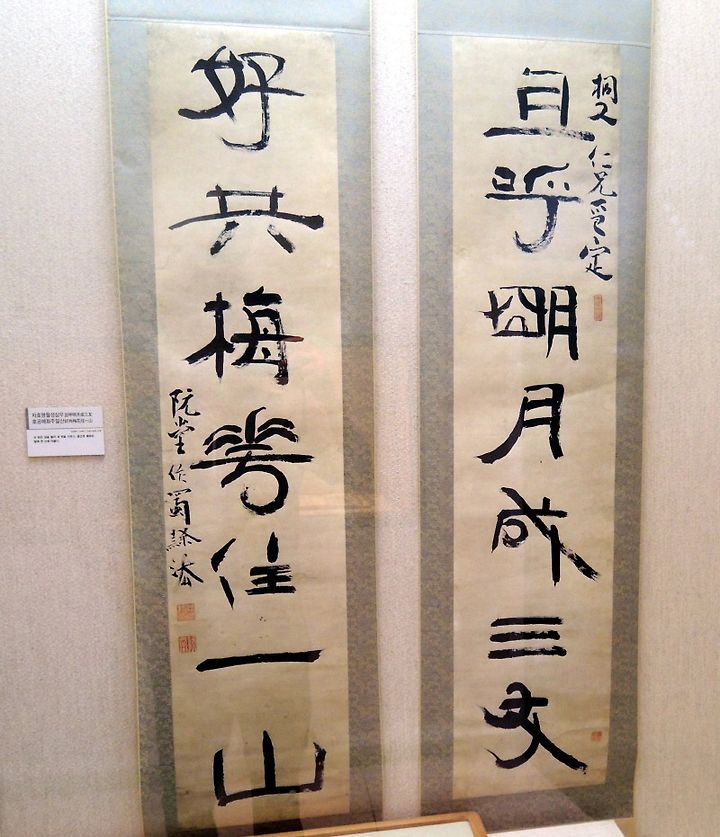 且呼朙月成三友
桐人仁兄定
好共梅花住一山
阮堂作蜀隷法
차호명월성삼우 且呼明月成三友
호공매화주일산 好共梅花住一山